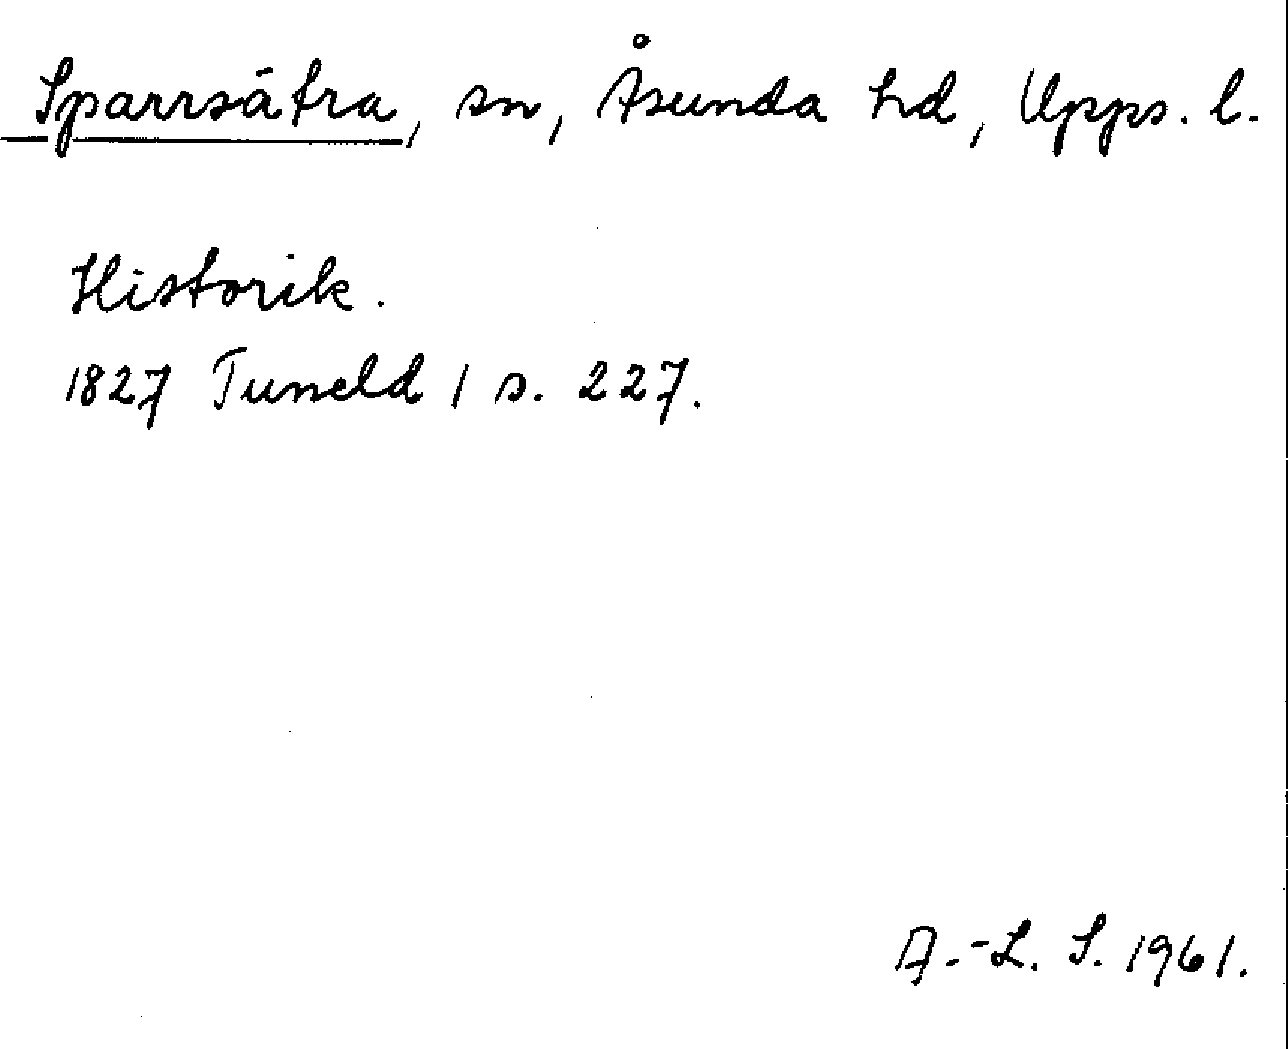 Sparrsätra, sn, Åsunda hd, Upps. l.
Historik.
1827 Tuneld 1 s. 227.
A.-L. S. 1961.